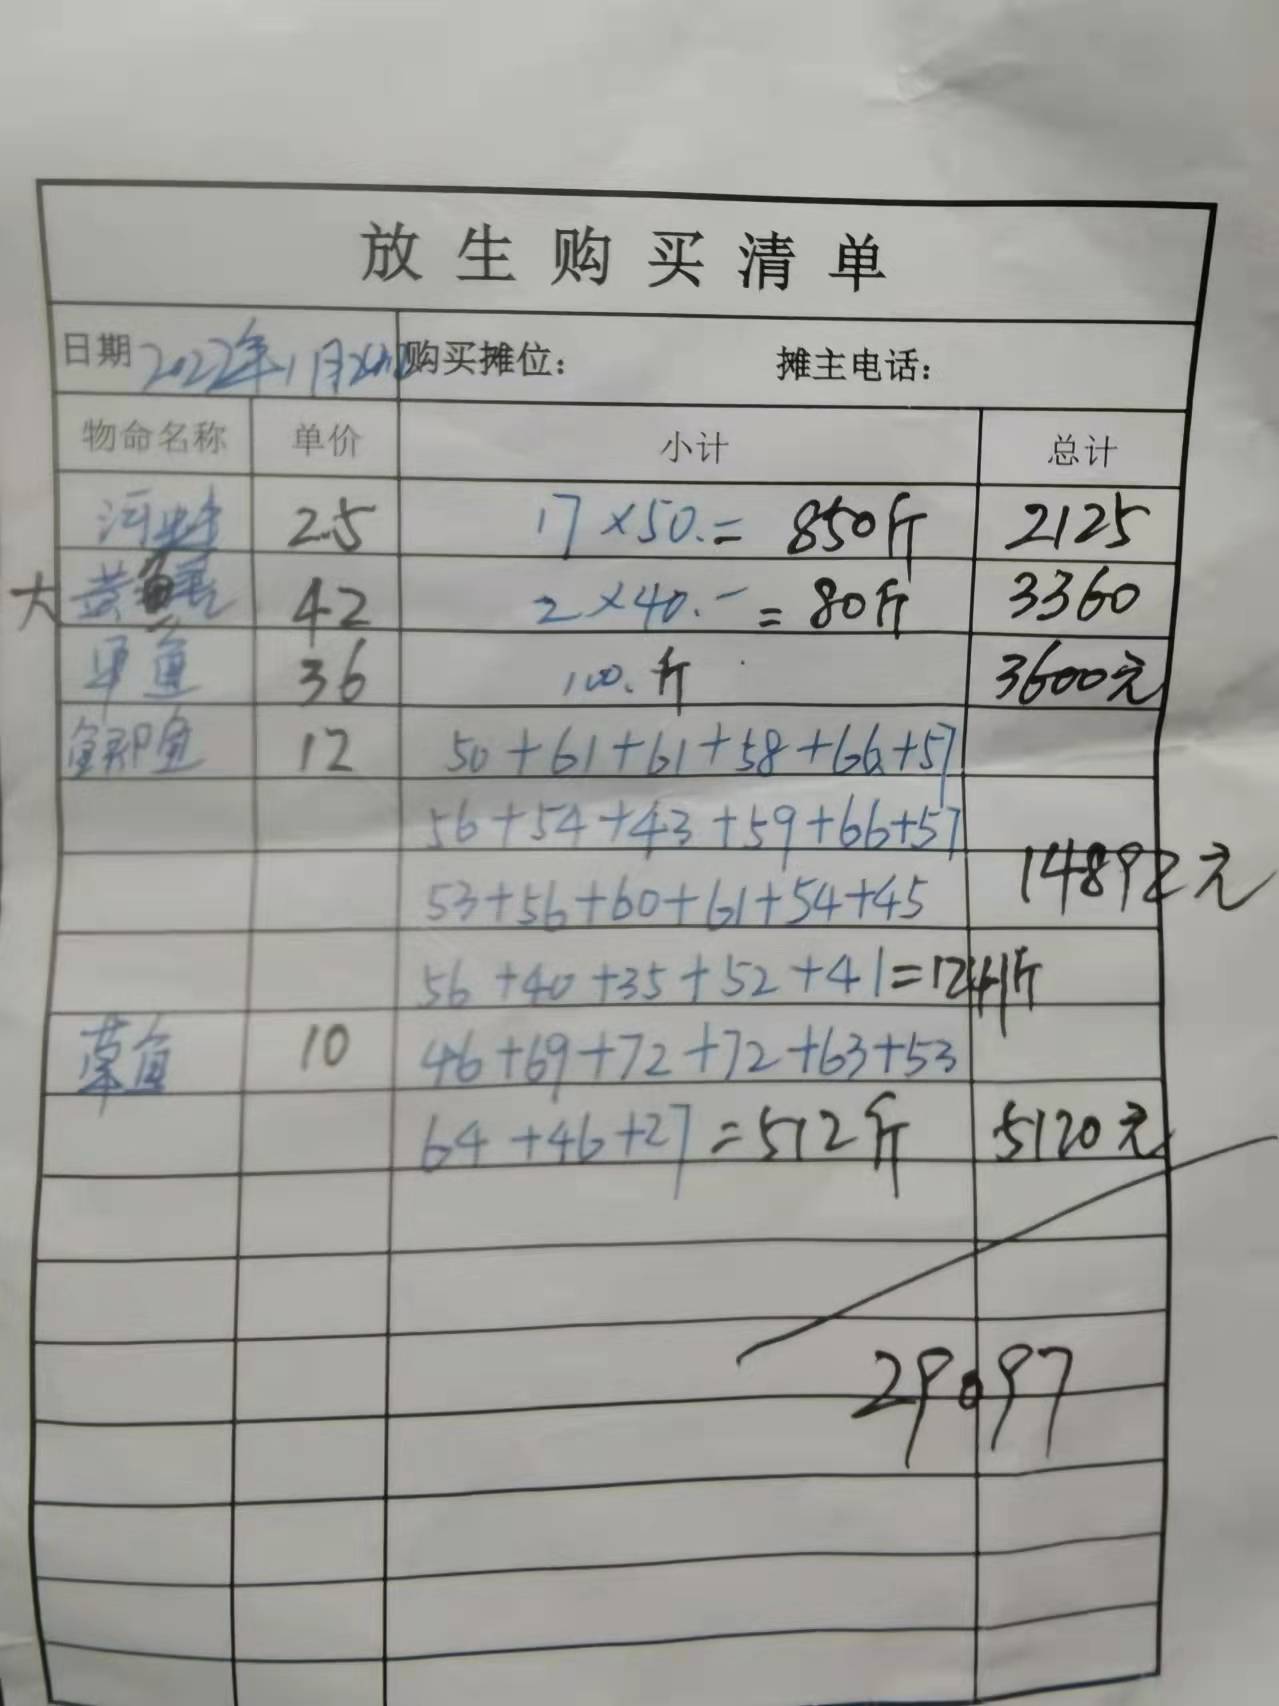 放生购买清单
日期 2022年1月 购买摊位： 摊主电话：
物命名称 单价 小计 总计
河蚌 2.5 17×50.= 850斤 2125
大黄鳝 42 2×40.- = 80斤 3360
甲鱼 36 100.斤 3600元
鲫鱼 12 50+61+61+58+66+57
56+54+43+59+66+57
53+56+60+61+54+45 14892元
56+40+35+52+41=1241斤
草鱼 10 46+69+72+72+63+53
64+46+27=512斤 5120元
29097